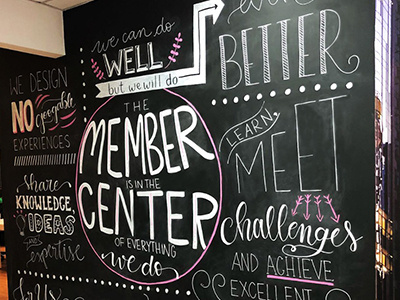 we can do
WELL
but we will do
even
BETTER
WE DESIGN
NO
EXPERIENCES
THE
MEMBER
IS IN THE
CENTER
OF EVERYTHING
we do
LEARN,
MEET
challenges
AND ACHIEVE
EXCELLENT
Share
KNOWLEDGE,
IDEAS
AND
expertise